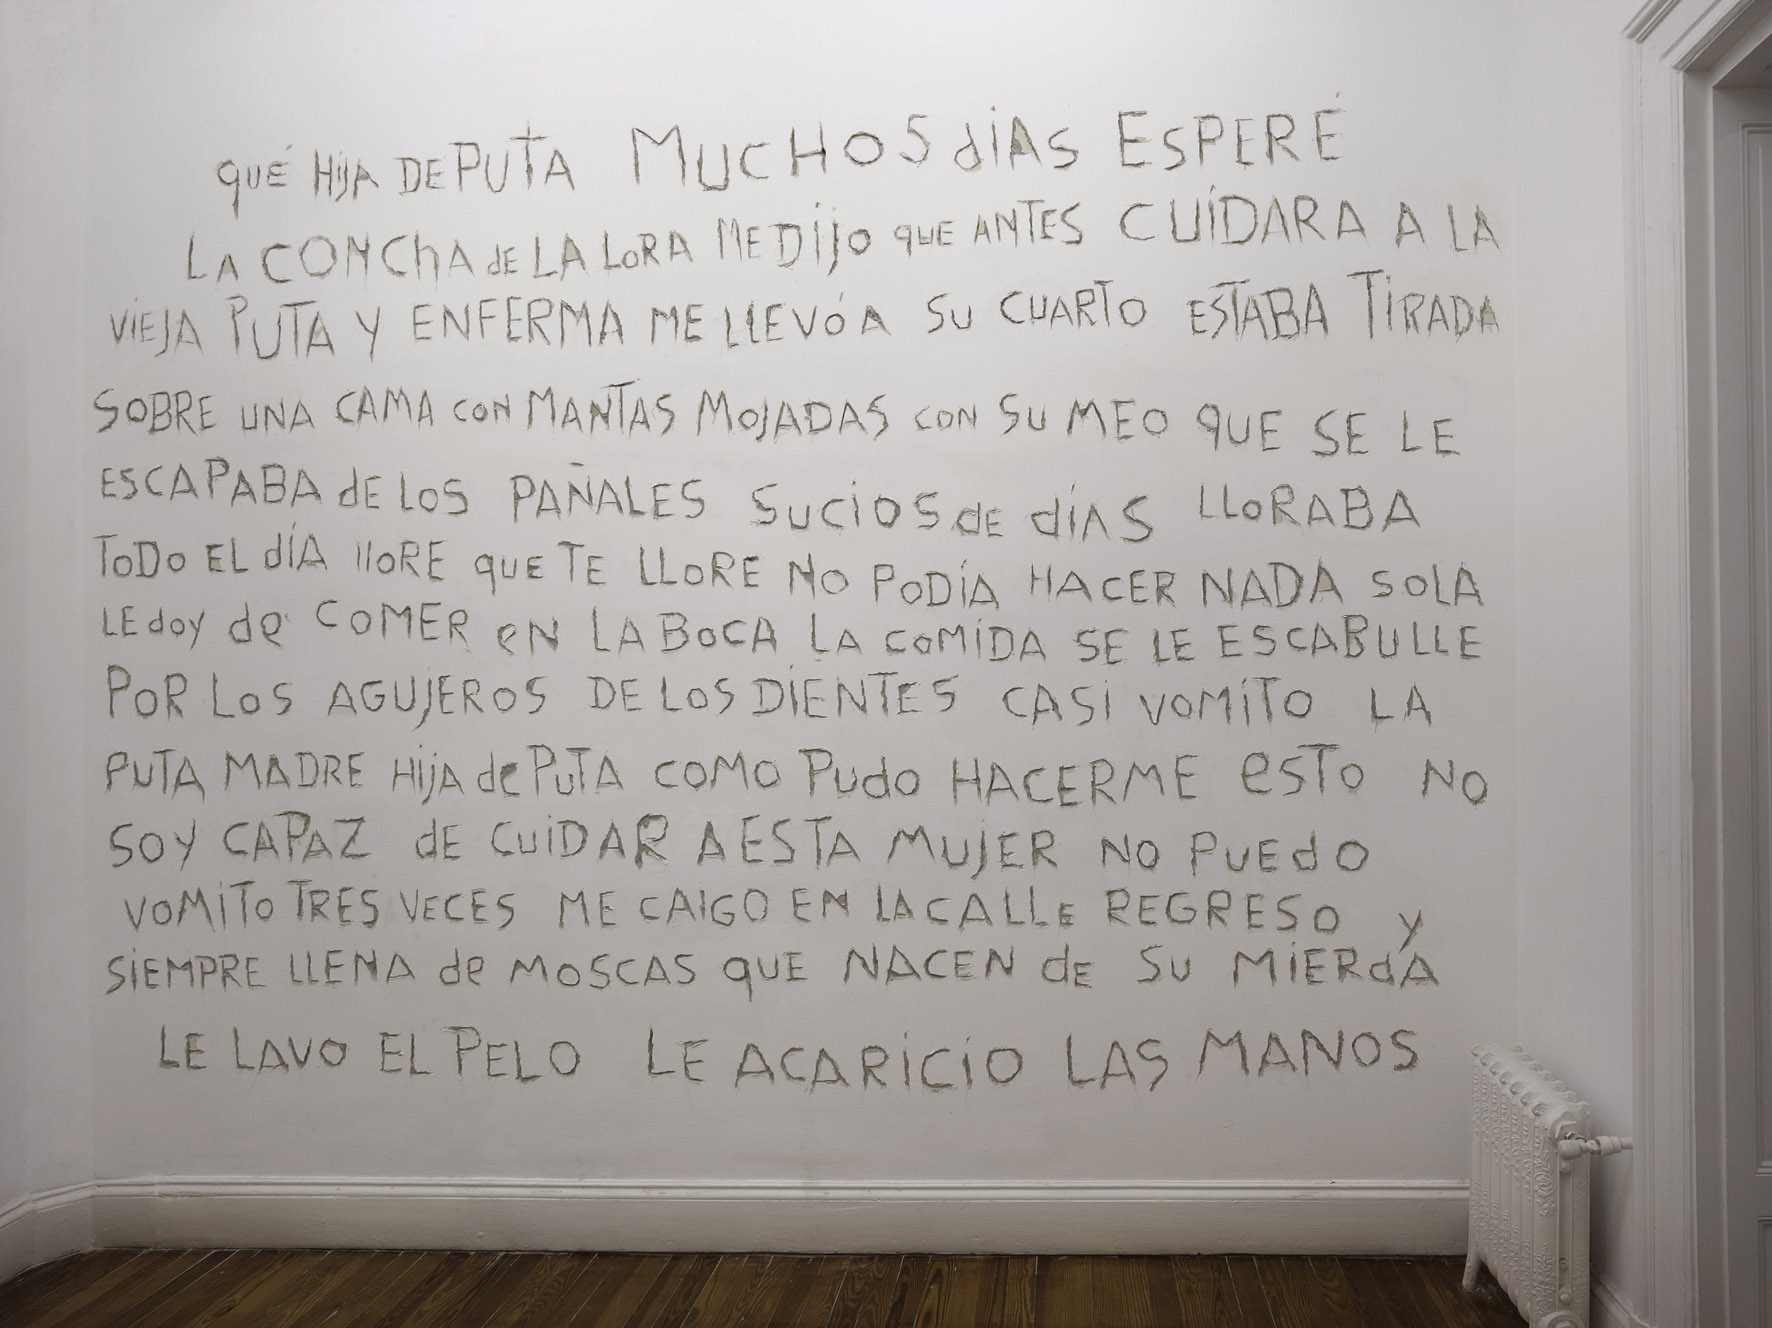 qUÉ HIJA DE PUTA MUCHOS dÍAS ESPERÉ
LA CONChA dE LA LORA ME DIJO qUE ANTES CUIDARA A LA
VIEJA PUTA Y ENFERMA ME LLEVÓ A SU CUARTO ESTABA TIRADA
SOBRE UNA CAMA CON MANTAS MOJADAS CON SU MEO QUE SE LE
ESCAPABA dE LOS PAÑALES SUCIOS dE dÍAS LLORABA
TODO EL dÍA llORE qUE TE LLORE NO PODÍA HACER NADA SOLA
LE doY de COMER eN LA BOCA LA COMIDA SE LE ESCABULLE
POR LOS AGUJEROS DE LOS DIENTES CASI VOMITO LA
PUTA MADRE HIJA de PUTA COMO PUdO HACERME eSTO NO
SOY CAPAZ dE CUIDAR A ESTA MUJER NO PUEdO
VOMITO TRES VECES ME CAIGO EN LA CALLE REGRESO Y
SIEMPRE LLENA de MOSCAS qUE NACEN dE SU MIERdA
LE LAVO EL PELO LE ACARICIO LAS MANOS